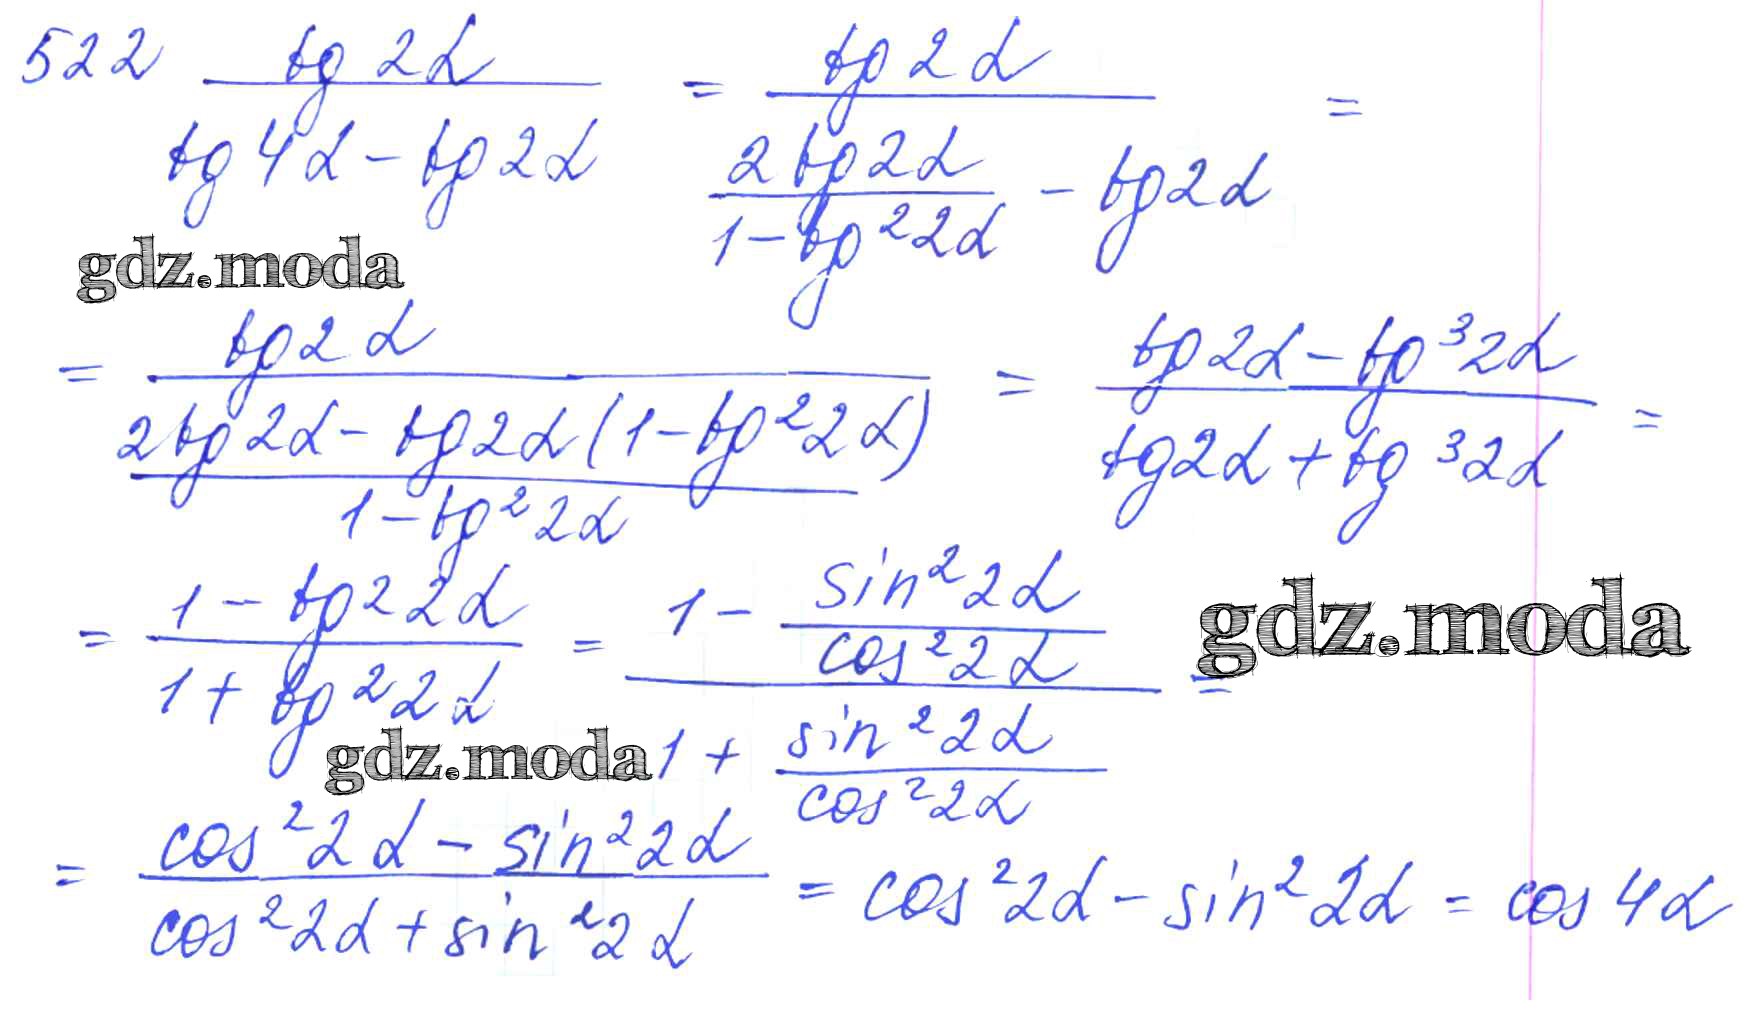 522 tg 2α / (tg 4α − tg 2α) = tg 2α / (2 tg 2α / (1 − tg² 2α) − tg 2α) =
gdz.moda
= tg 2α / ((2 tg 2α − tg 2α (1 − tg² 2α)) / (1 − tg² 2α)) = (tg 2α − tg³ 2α) / (tg 2α + tg³ 2α) =
= (1 − tg² 2α) / (1 + tg² 2α) = (1 − sin² 2α / cos² 2α) / (1 + sin² 2α / cos² 2α) =
gdz.moda
gdz.moda
= (cos² 2α − sin² 2α) / (cos² 2α + sin² 2α) = cos² 2α − sin² 2α = cos 4α